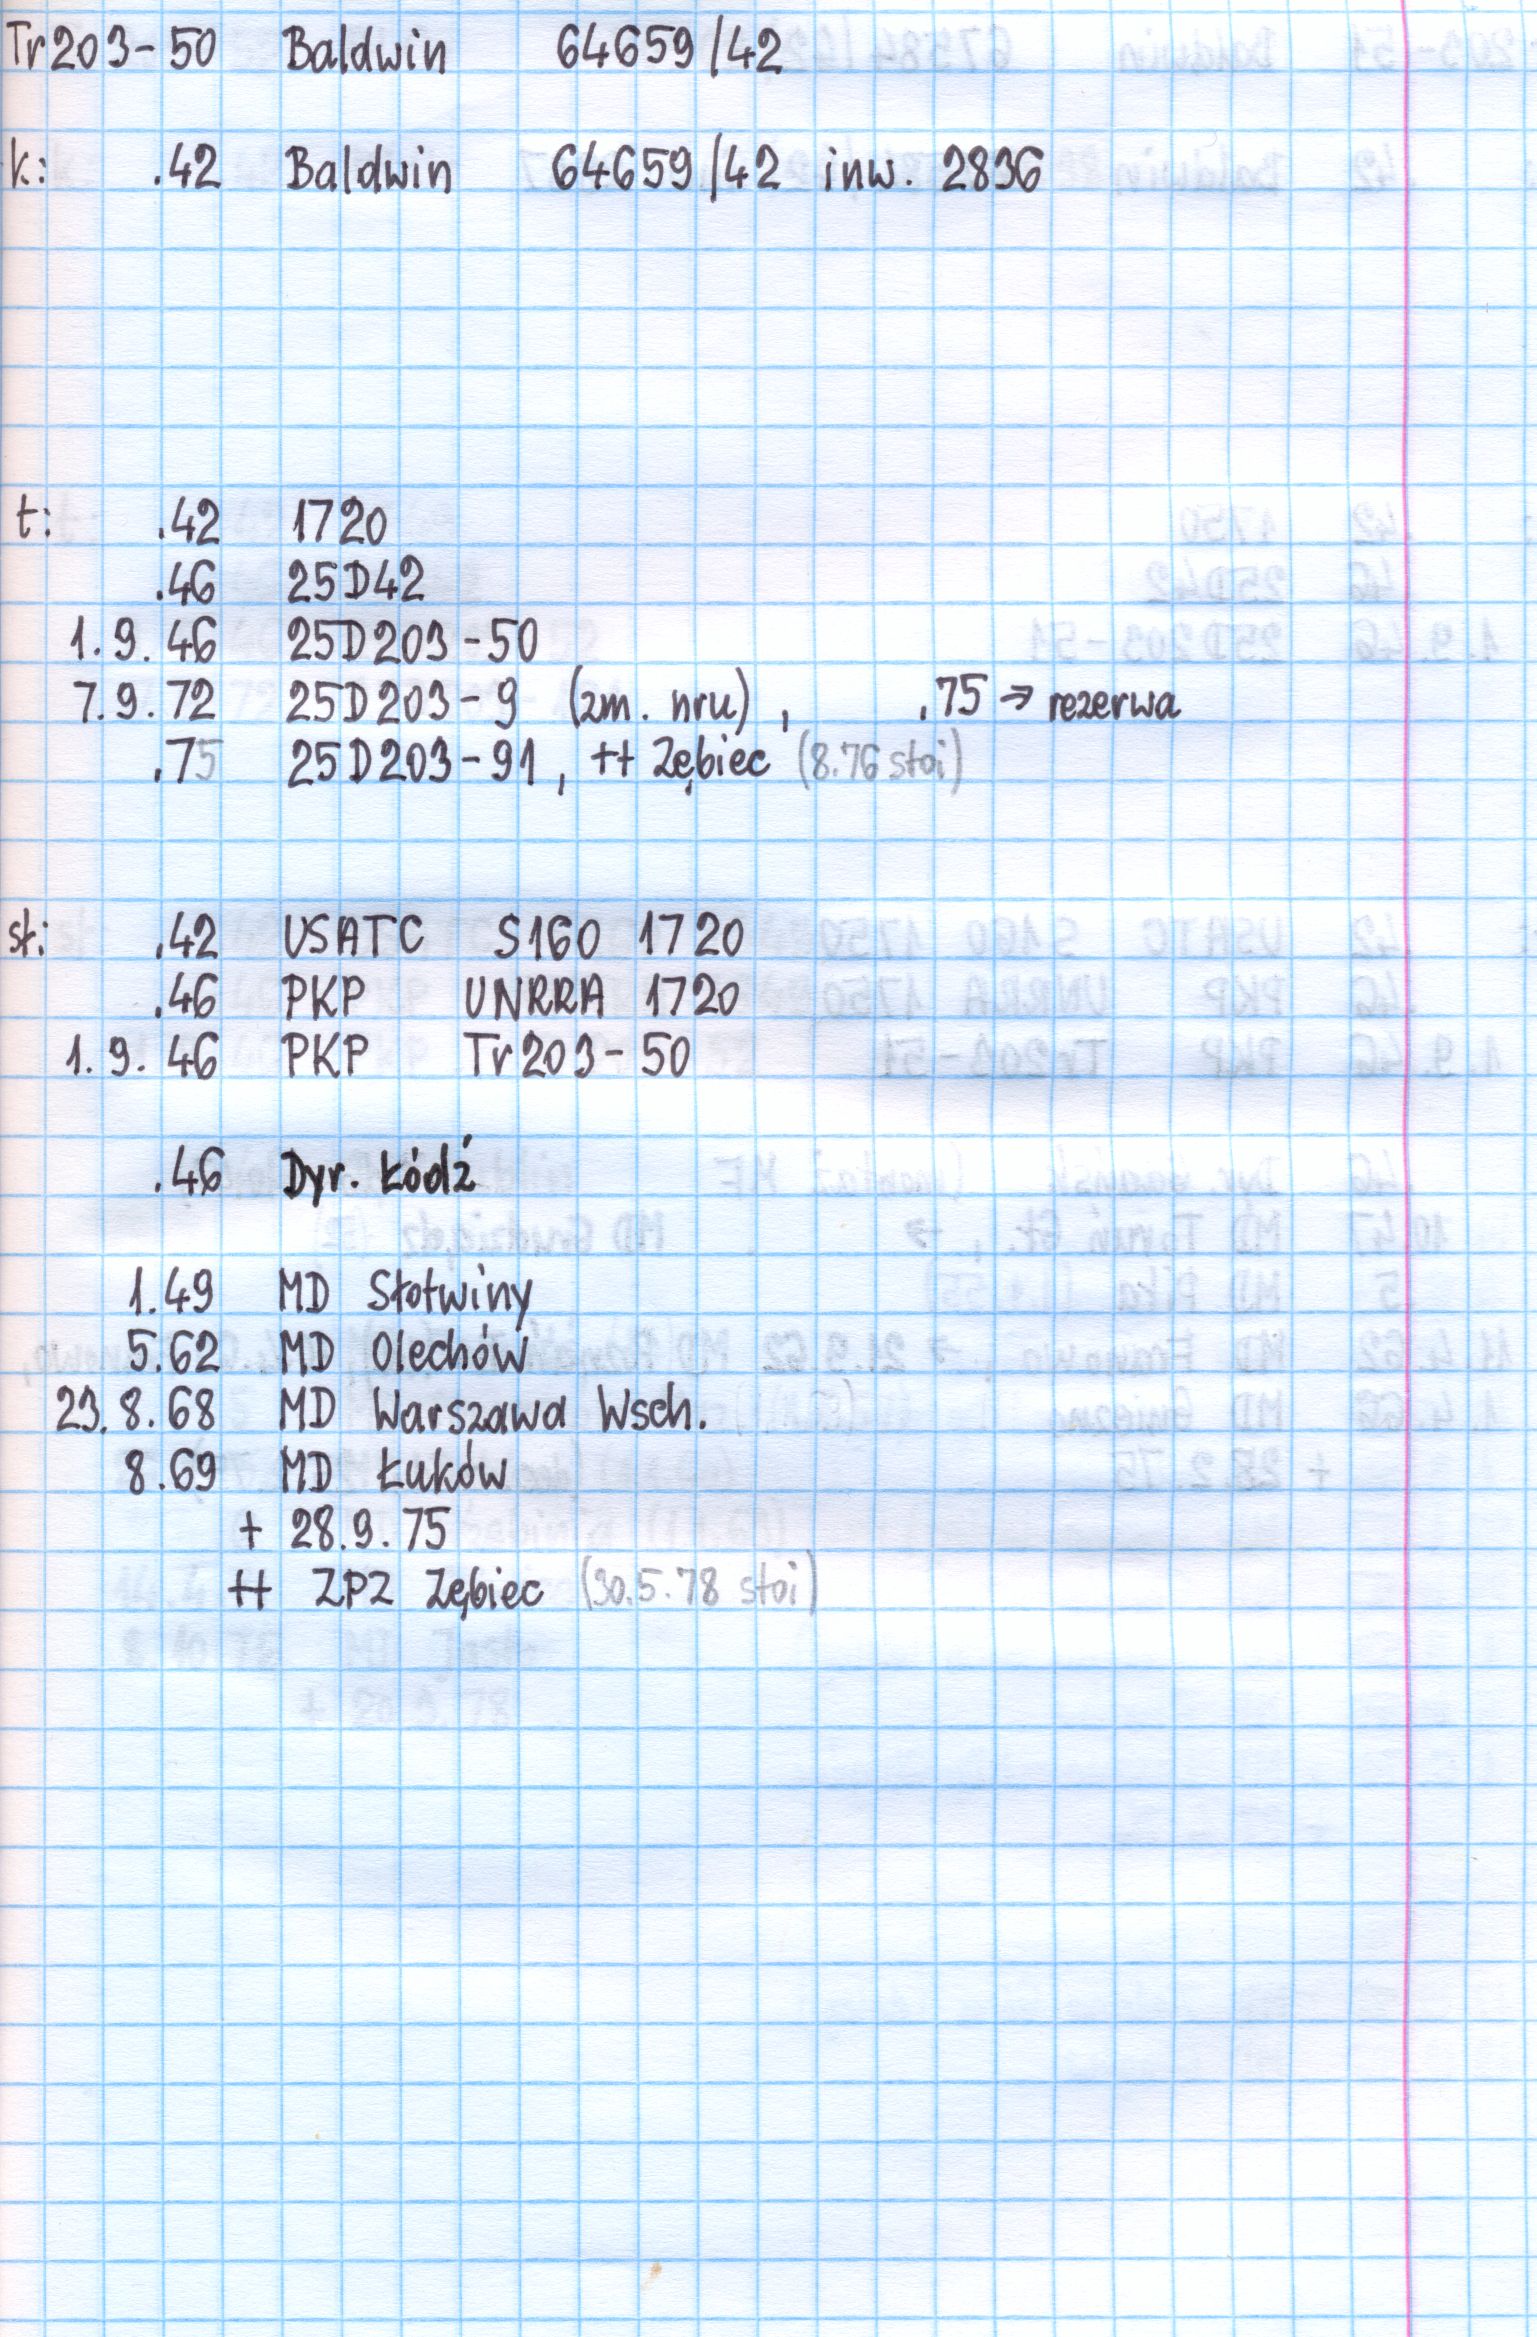 Tr203-50 Baldwin 64659/42
k: .42 Baldwin 64659/42 inw. 2836
t: .42 1720
.46 25D42
1.9.46 25D203-50
7.9.72 25D203-9 (zm. nru), .75 → rezerwa
.75 25D203-91, ++ Zębiec (8.76 stoi)
st: .42 USATC S160 1720
.46 PKP UNRRA 1720
1.9.46 PKP Tr203-50
.46 Dyr. Łódź
1.49 MD Słotwiny
5.62 MD Olechów
23.8.68 MD Warszawa Wsch.
8.69 MD Łuków
+ 28.9.75
++ ZPZ Zębiec (30.5.78 stoi)